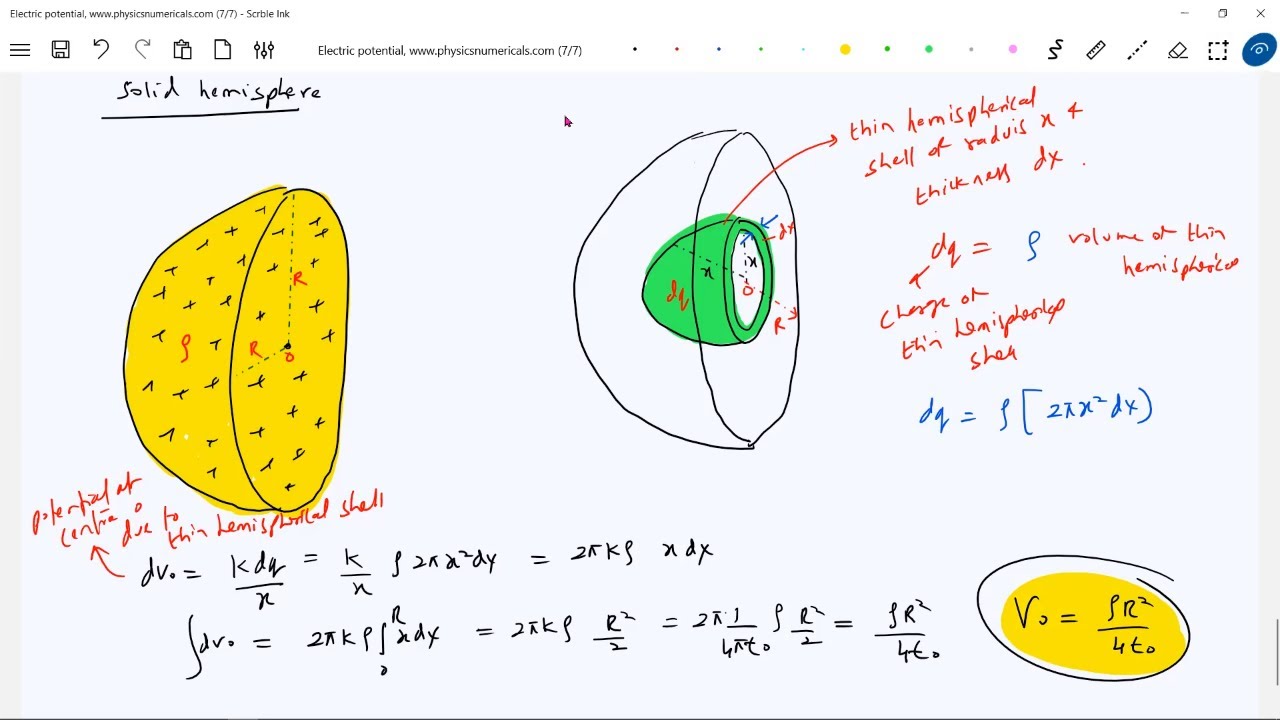 Electric potential, www.physicsnumericals.com (7/7) - Scrble Ink
Electric potential, www.physicsnumericals.com (7/7)
Solid hemisphere
thin hemispherical
shell of radius x &
thickness dx .
dx
x
x
O
dq
R
R
R
O
ρ
dq = ρ volume of thin
hemispherical
charge of
thin hemispherical
shell
dq = ρ [ 2πx² dx )
potential at
centre o
due to
thin hemispherical shell
dv₀ = kdq/x = k/x ρ 2πx²dx = 2πkρ x dx
∫dv₀ = 2πkρ ∫₀ᴿ x dx = 2πkρ R²/2 = 2π 1/4πε₀ ρ R²/2 = ρR²/4ε₀
V₀ = ρR²/4ε₀